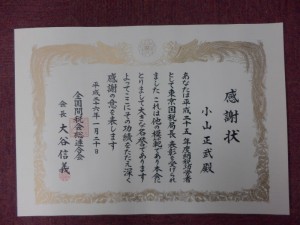 感謝状
小山正武殿
あなたは平成二十五年度納税功労者
として東京国税局長表彰を受けられ
ました これは他の模範であり本会に
とりまして大きな名誉であります
よってここにその功績をたたえ深く
感謝の意を表します
平成二十六年一月二十日
全国間税会総連合会
会長 大谷信義